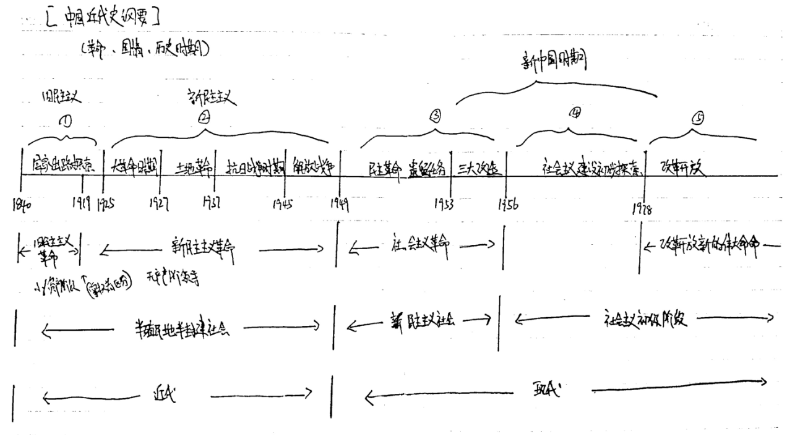 [中国近代史纲要]
(革命、国情、历史时期)
新中国时期
旧民主主义 新民主主义
① ② ③ ④ ⑤
国家出路探索 大革命时期 土地革命 抗日战争时期 解放战争 民主革命 遗留任务 三大改造 社会主义建设初步探索 改革开放
1840 1919 1925 1927 1937 1945 1949 1953 1956 1978
旧民主主义革命 新民主主义革命 社会主义革命 改革开放新的伟大革命
无产阶级领导
半殖民地半封建社会 新民主主义社会 社会主义初级阶段
近代 现代